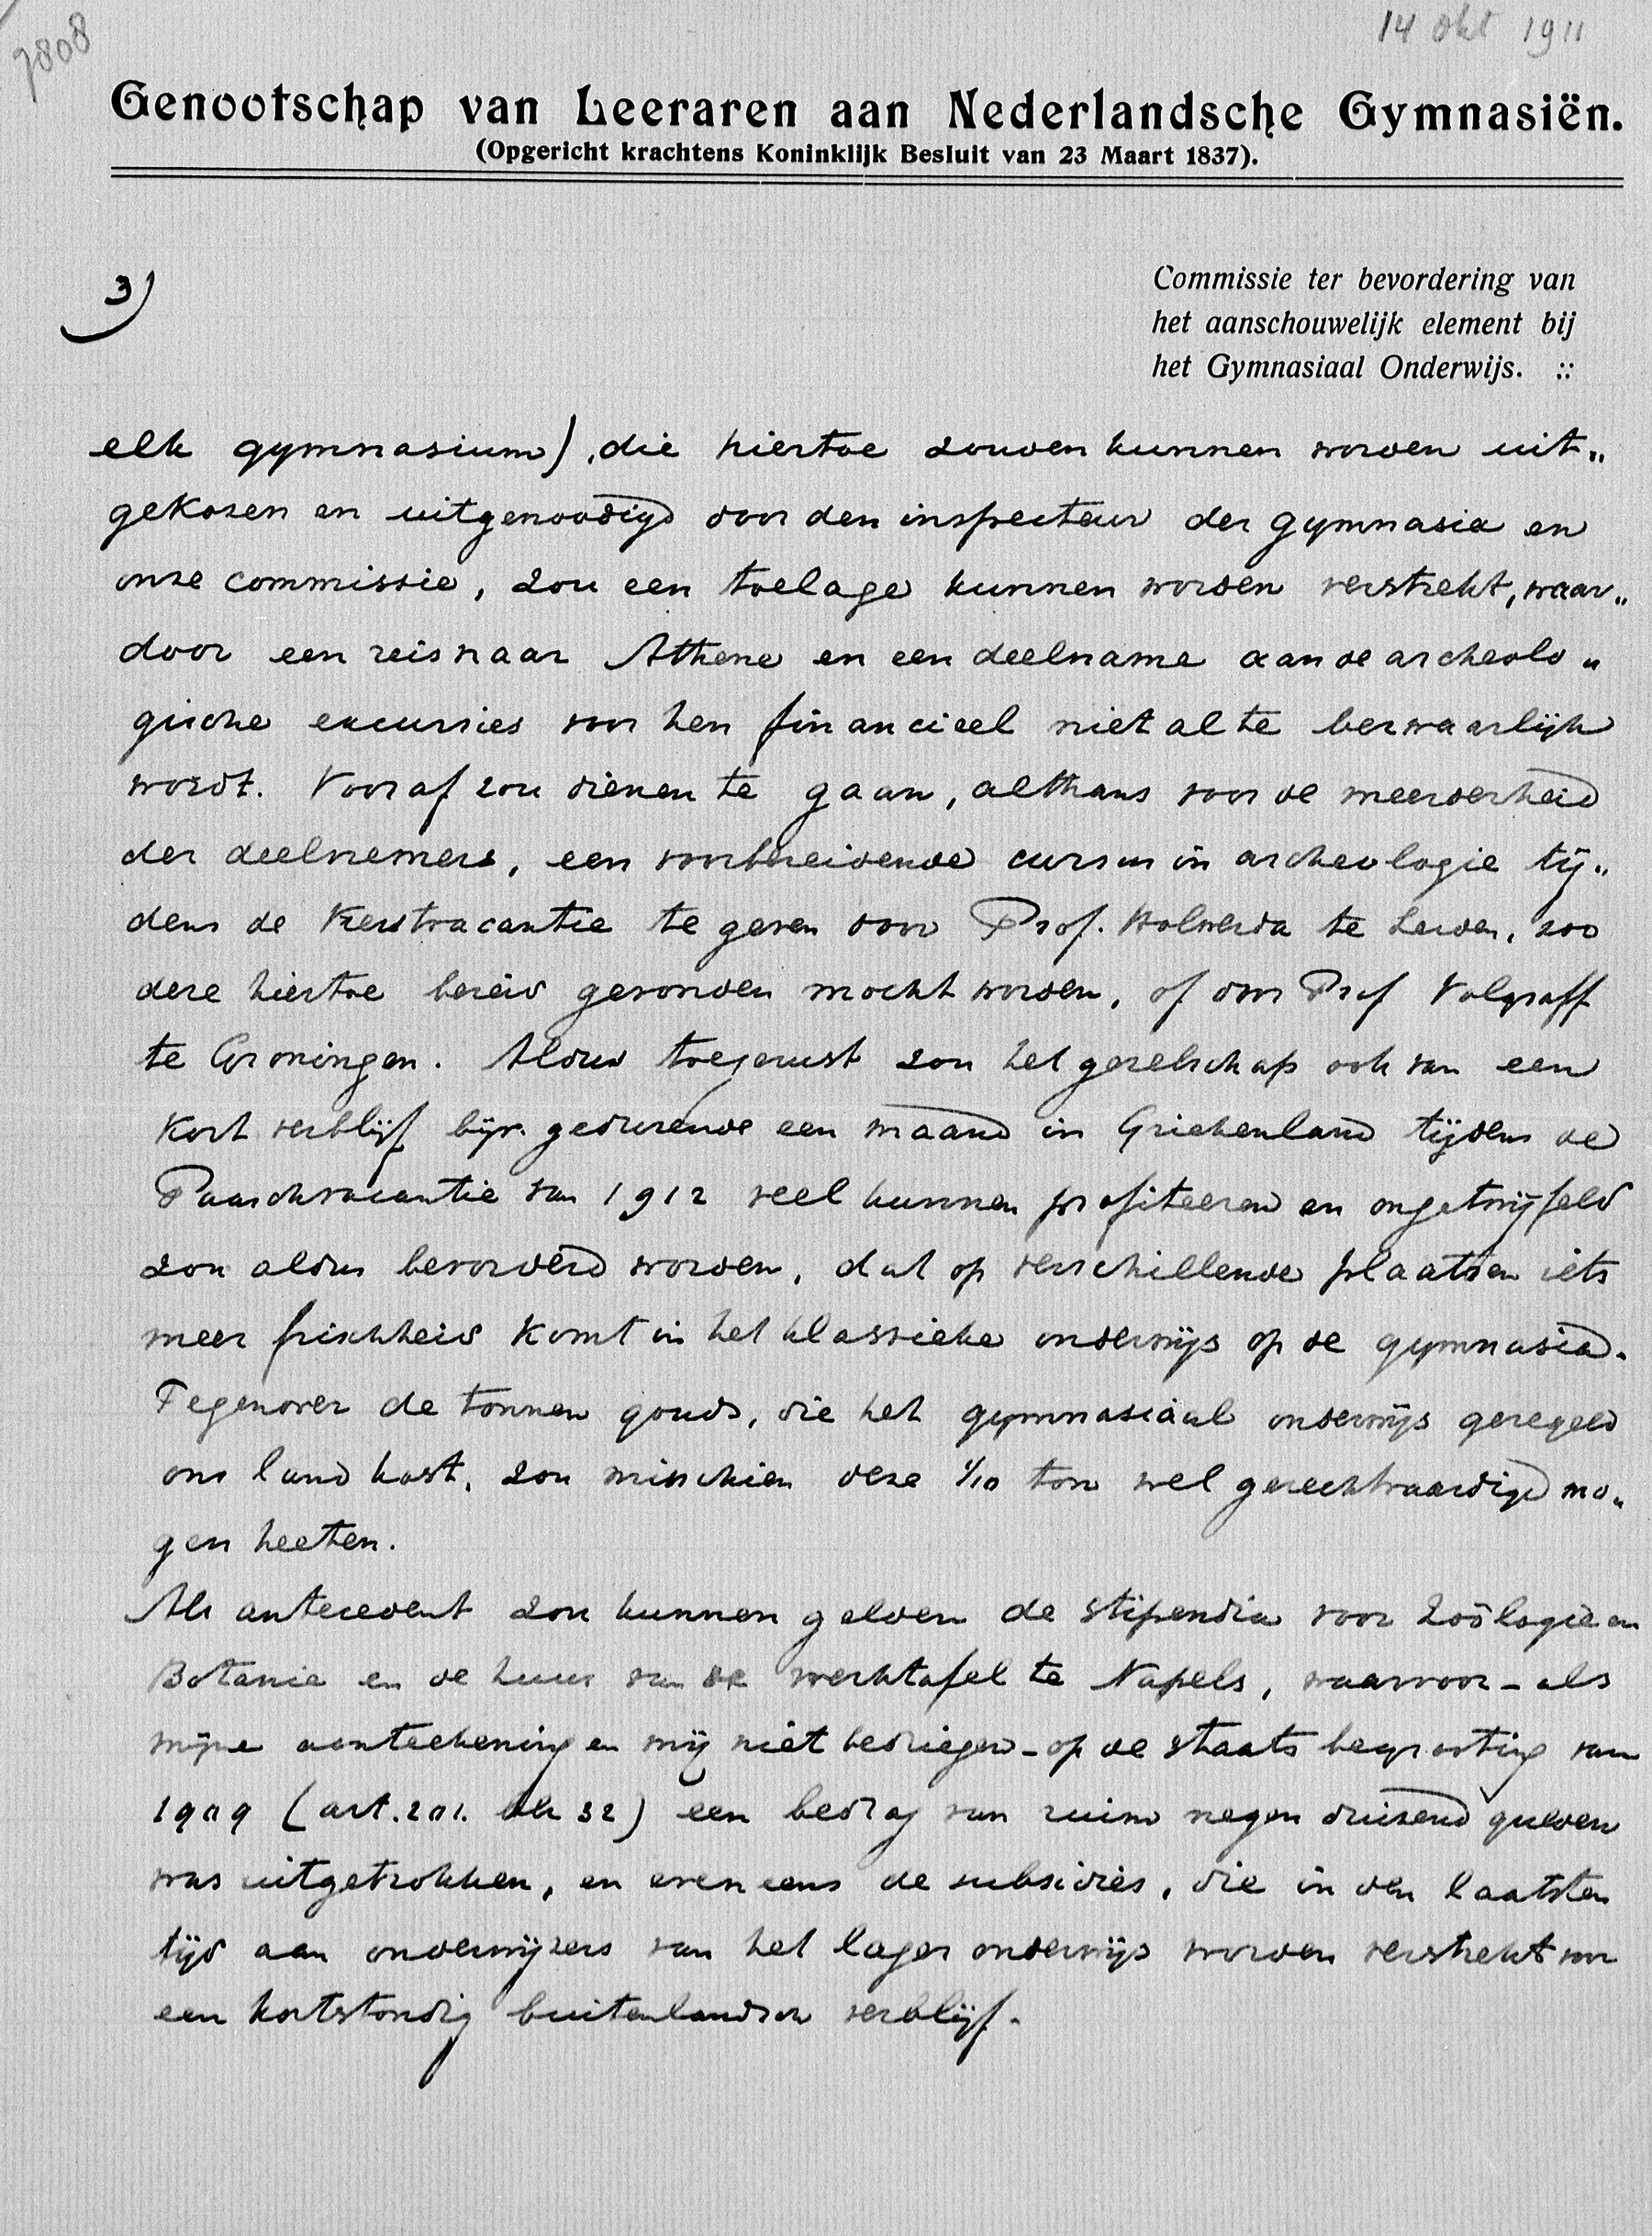 7808
14 Okt 1911
Genootschap van Leeraren aan Nederlandsche Gymnasiën.
(Opgericht krachtens Koninklijk Besluit van 23 Maart 1837).
3)
Commissie ter bevordering van
het aanschouwelijk element bij
het Gymnasiaal Onderwijs. ::
elk gymnasium), die hiertoe zouden kunnen worden uit„
gekozen en uitgenoodigd door den inspecteur der gymnasia en
onze commissie, zou een toelage kunnen worden verstrekt, waar„
door een reis naar Athene en een deelname aan de archeolo„
gische excursies voor hen financieel niet al te bezwaarlijk
wordt. Vooraf zou dienen te gaan, althans voor de meerderheid
der deelnemers, een voorbereidende cursus in archeologie tij„
dens de Kerstvacantie te geven door Prof. Holwerda te Leiden, zoo
deze hiertoe bereid gevonden mocht worden, of door Prof Volgraff
te Groningen. Aldus toegerust zou het gezelschap ook van een
kort verblijf bijv. gedurende een maand in Griekenland tijdens de
Paaschvacantie van 1912 veel kunnen profiteeren en ongetwijfeld
zou aldus bevorderd worden, dat op verschillende plaatsen iets
meer frischheid komt in het klassieke onderwijs op de gymnasia.
Tegenover de tonnen gouds, die het gymnasiaal onderwijs geregeld
ons land kost, zou misschien deze 1/10 ton wel gerechtvaardigd mo„
gen heeten.
Als antecedent zou kunnen gelden de stipendia voor Zoölogie en
Botanie en de huur van de werktafel te Napels, waarvoor - als
mijne aanteekeningen mij niet bedriegen - op de staatsbegrooting van
1909 (art. 201. blz 32) een bedrag van ruim negen duizend gulden
was uitgetrokken, en eveneens de subsidies, die in den laatsten
tijd aan onderwijzers van het lager onderwijs worden verstrekt voor
een kortstondig buitenlandsch verblijf.